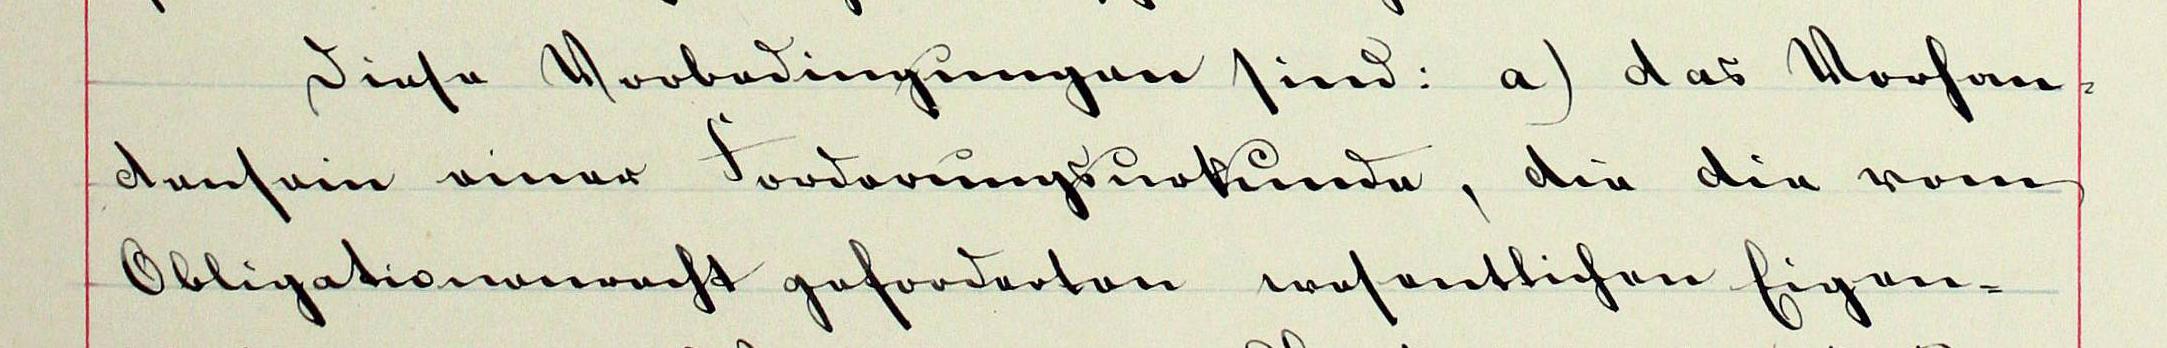 Diese Vorbedingungen sind: a) das Vorhan-
densein einer Forderungsurkunde, die die vom
Obligationenrecht geforderten wesentlichen Eigen-